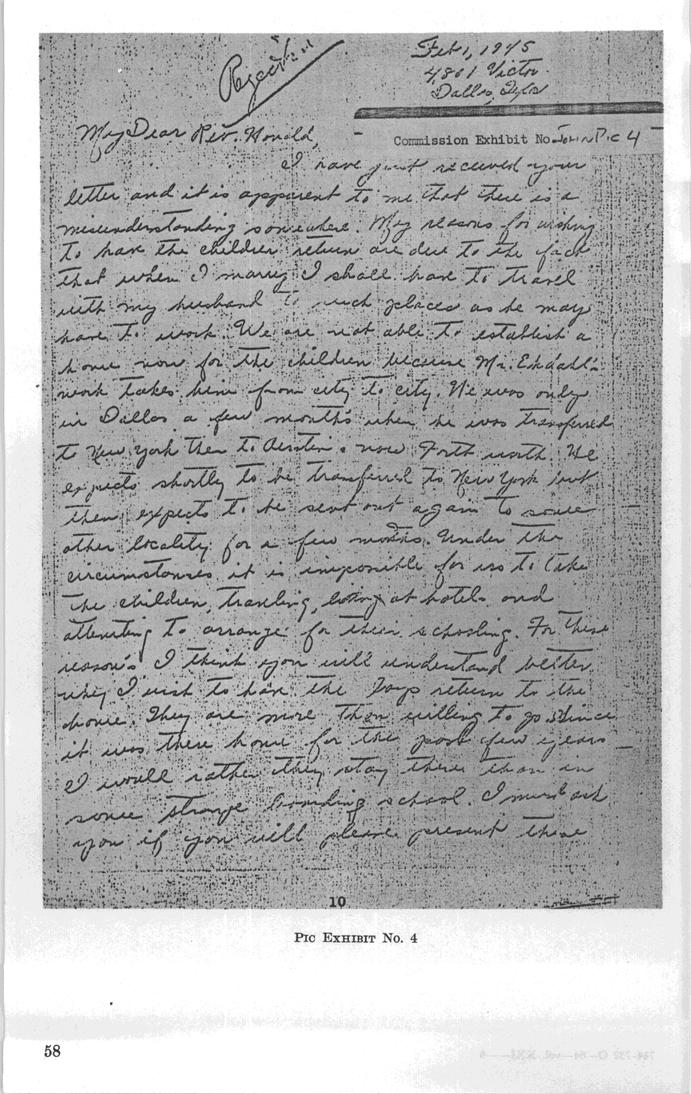 Feb 1, 1945
4801 Victor
Dallas, Texas
Commission Exhibit No John Pic 4
My Dear Rev.
I have just received your
letter and it is apparent to me that there is a
misunderstanding somewhere. My reasons for wishing
to have the children return are due to the fact
that when I marry I shall have to travel
with my husband to such places as he may
have to work. We are not able to establish a
home now for the children because Mr. Ekdahl's
work takes him from city to city. He was only
in Dallas a few months when he was transferred
to New York then to Austin & now Forth worth. He
expects shortly to be transferred to New York but
then expects to be sent out again to some
other locality for a few months. Under the
circumstances it is impossible for us to take
the children, traveling, at hotels and
attempting to arrange for their schooling. For these
reasons I think you will understand better
why I wish to have the boys return to the
home. They are more than willing to go & since
it was there home for the past few years
I would rather they stay there than in
some strange boarding school. I must ask
you if you will please present these
10
Pic Exhibit No. 4
58